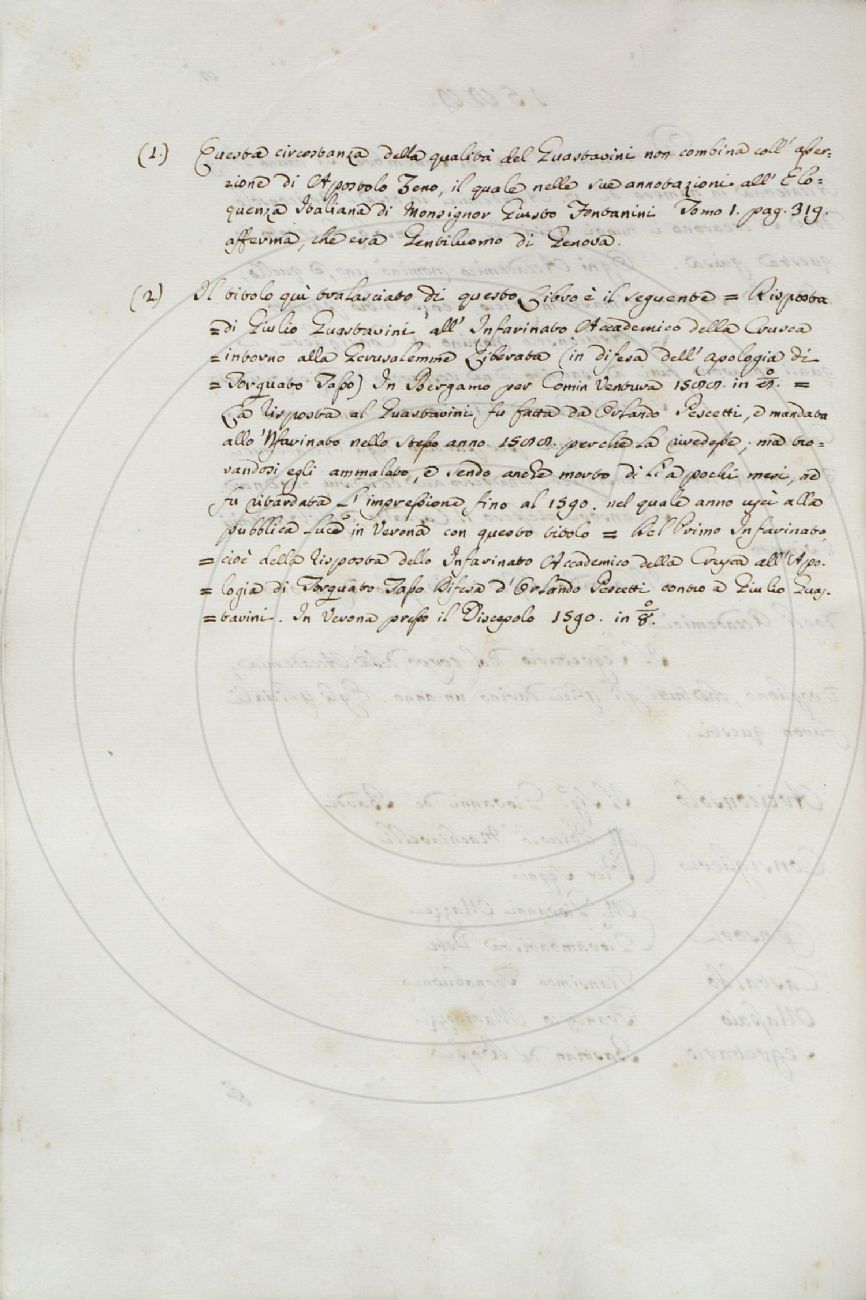 (1.) Questa circostanza della qualità del Guastavini non combina coll' asser-
zione di Apostolo Zeno, il quale nelle sue annotazioni all' Elo=
quenza Italiana di Monsignor Giusto Fontanini Tomo 1. pag. 319.
afferma, che era Gentiluomo di Genova.
(2) Il titolo quì tralasciato di questo Libro è il seguente = Risposta
= di Giulio Guastavini all' Infarinato Accademico della Crusca
= intorno alla Gerusalemme Liberata (in difesa dell' Apologia di
= Torquato Tasso) In Bergamo per Comin Ventura 1588. in 8°. =
La risposta al Guastavini fu fatta da Orlando Pescetti, e mandata
allo 'Nfarinato nello stesso anno 1588. perchè la vedesse; ma tro-
vandosi egli ammalato, e sendo anche morto di lì a pochi mesi, ne
fu ritardata l' impressione fino al 1590. nel quale anno uscì alla
pubblica luce in Verona con questo titolo = Del Primo Infarinato,
= cioè della risposta dello Infarinato Accademico della Crusca all' Apo-
= logia di Torquato Tasso Difesa d' Orlando Pescetti contro a Giulio Guas-
= tavini. In Verona presso il Discepolo 1590. in 8°.